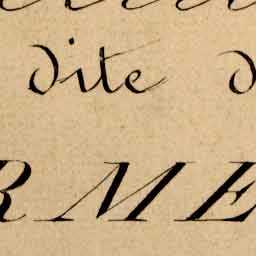 dite d
RME